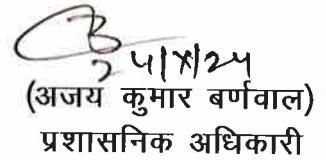 24/X/24
(अजय कुमार बर्णवाल)
प्रशासनिक अधिकारी